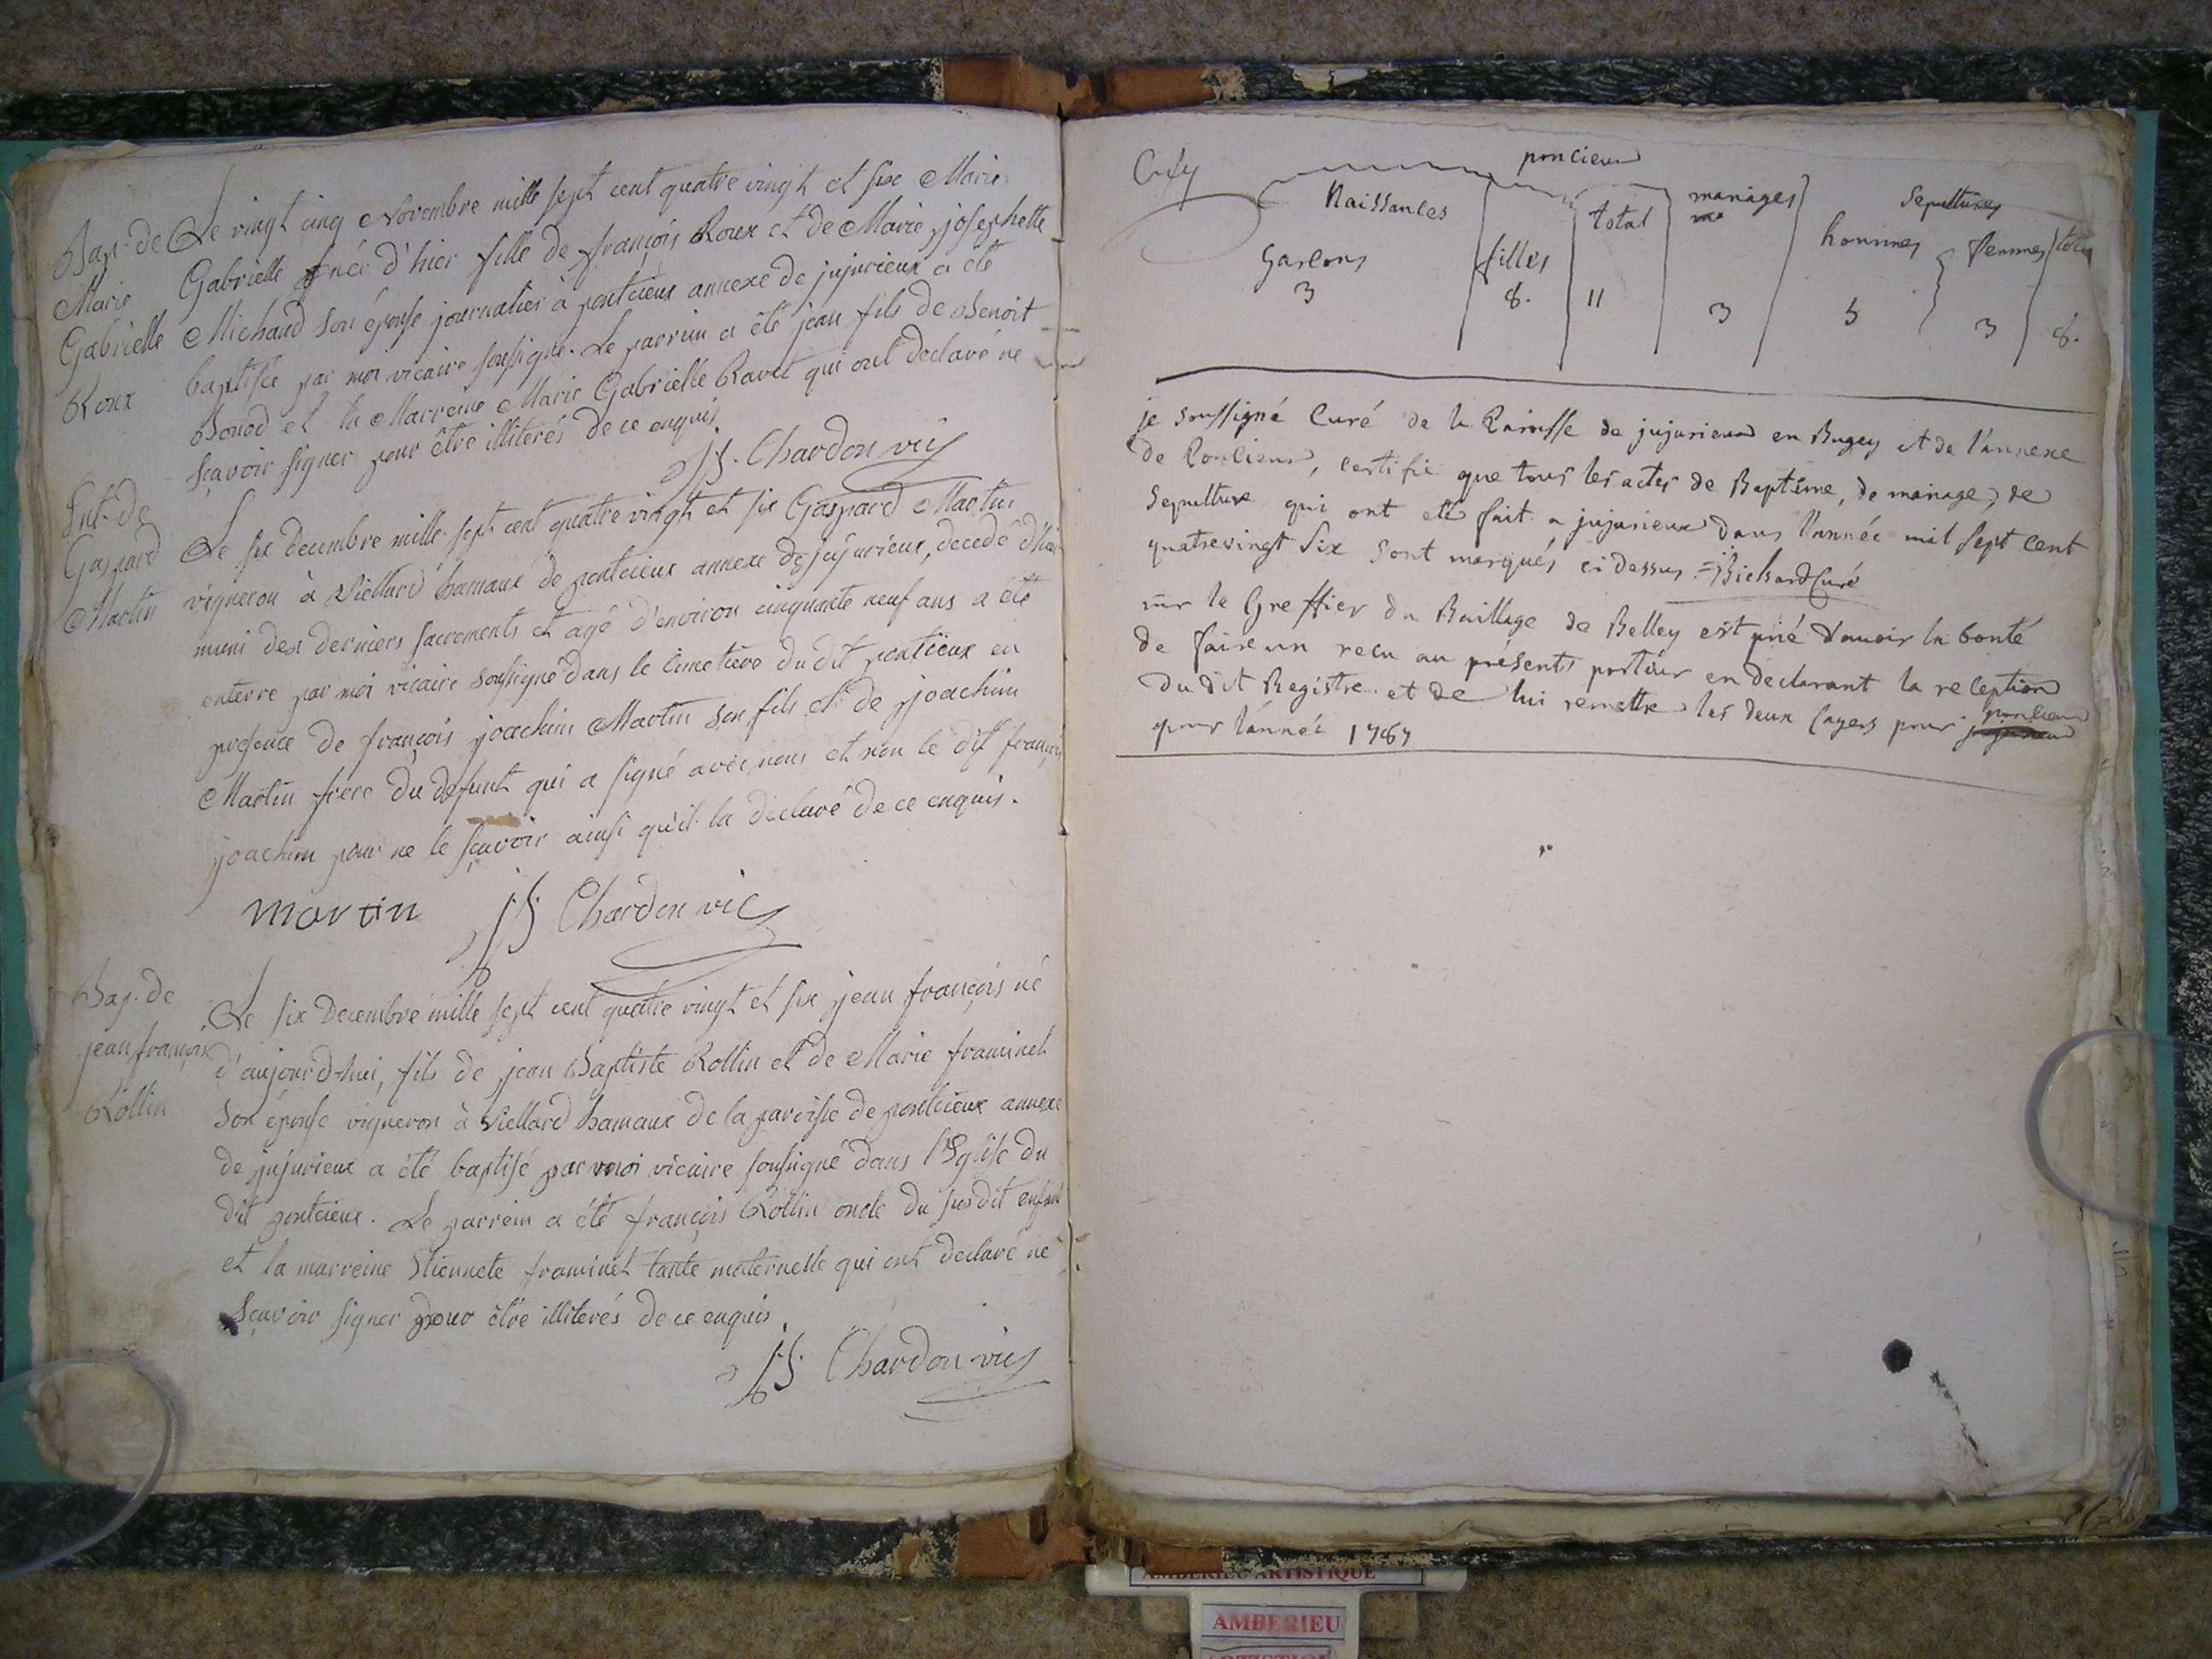 Bap. de
Marie
Gabrielle
Roux
Le vingt cinq Novembre mille sept cent quatre vingt et six Marie
Gabrielle née d'hier fille de françois Roux et de Marie josephette
Michaud son épouse journalier à pontcieux annexe de jujurieux a été
baptisée par moi vicaire soussigné. Le parrein a été jean fils de Benoit
Bonod et la Marreine Marie Gabrielle Ravet qui ont declaré ne
sçavoir signer pour être illiterés de ce enquis
JB. Chardon vic
Ent. de
Gaspard
Martin
Le six decembre mille sept cent quatre vingt et six Gaspard Martin
vigneron à Viellard hamaux de pontcieux annexe de jujurieux, decedé d'hier
muni des derniers sacrements et agé d'environ cinquante neuf ans a été
enterre par moi vicaire soussigné dans le cimetiere du dit pontcieux en
presence de françois joachim Martin son fils et de joachim
Martin frere du defunt qui a signé avec nous et non le dit françois
joachim pour ne le sçavoir ainsi qu'il la declaré de ce enquis.
martin JB Chardon vic
Bap. de
jean françois
Rollin
Le six Decembre mille sept cent quatre vingt et six jean françois né
d'aujourd-hui, fils de jean Baptiste Rollin et de Marie framinet
son épouse vigneron à Viellard hamaux de la paroisse de pontcieux annexe
de jujurieux a été baptisé par moi vicaire soussigné dans l'Eglise du
dit pontcieux. Le parrein a été françois Rollin oncle du susdit enfant
et la marreine Etiennete framinet tante maternelle qui ont declaré ne
sçavoir signer pour être illiterés de ce enquis.
JB Chardon vic
poncieux
Naissances total mariages sepultures
Garçons filles hommes femmes total
3 8. 11 3 5 3 8.
je soussigné Curé de la Paroisse de jujurieux en Bugey et de l'annexe
de Poncieux, certifie que tous les actes de Baptême, de mariage, de
sepulture qui ont eté fait a jujurieux dans l'année mil sept cent
quatrevingt six sont marqués ci dessus. Richard Curé
mr le Greffier du Baillage de Belley est prié d'avoir la bonté
de faire un recu au présents porteur en déclarant la reception
du dit Registre et de lui remettre les deux cayers pour poncieux
jujurieux
pour l'année 1787
AMBERIEU ARTISTIQUE
AMBERIEU
ARTISTIQUE